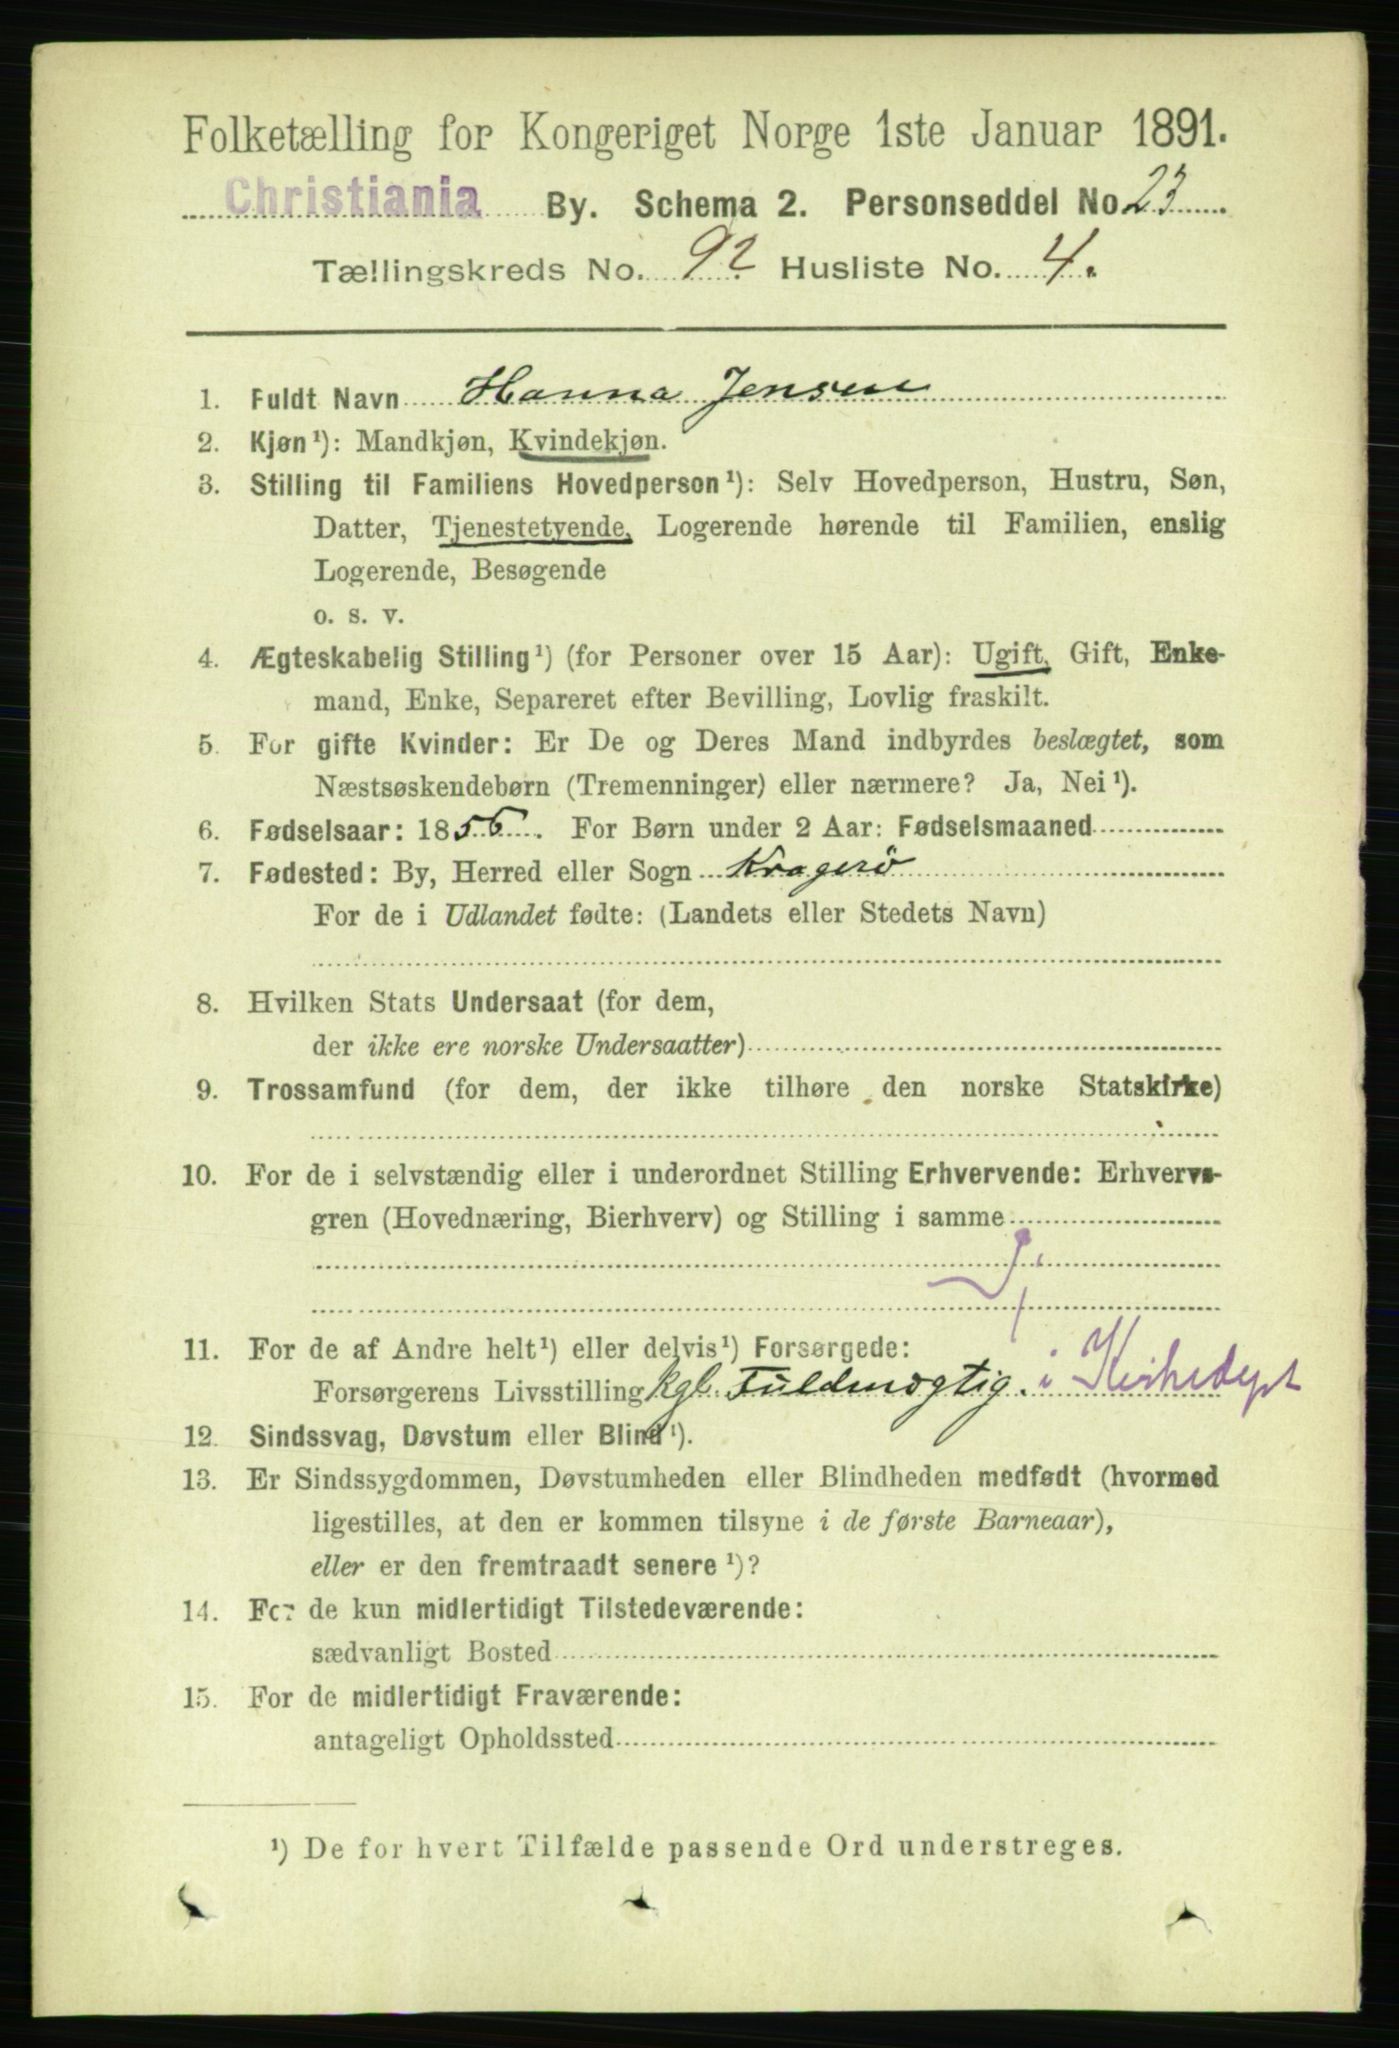 Folketælling for Kongeriget Norge 1ste Januar 1891.
Christiania By. Schema 2. Personseddel No 23
Tællingskreds No. 92 Husliste No. 4.
1. Fuldt Navn Hanna Jensen
2. Kjøn¹): Mandkjøn, Kvindekjøn.
3. Stilling til Familiens Hovedperson¹): Selv Hovedperson, Hustru, Søn,
Datter, Tjenestetyende, Logerende hørende til Familien, enslig
Logerende, Besøgende
o. s. v.
4. Ægteskabelig Stilling¹) (for Personer over 15 Aar): Ugift, Gift, Enke-
mand, Enke, Separeret efter Bevilling, Lovlig fraskilt.
5. For gifte Kvinder: Er De og Deres Mand indbyrdes beslægtet, som
Næstsøskendebørn (Tremenninger) eller nærmere? Ja, Nei¹).
6. Fødselsaar: 1856. For Børn under 2 Aar: Fødselsmaaned
7. Fødested: By, Herred eller Sogn Kragerö
For de i Udlandet fødte: (Landets eller Stedets Navn)
8. Hvilken Stats Undersaat (for dem,
der ikke ere norske Undersaatter)
9. Trossamfund (for dem, der ikke tilhøre den norske Statskirke)
10. For de i selvstændig eller i underordnet Stilling Erhvervende: Erhvervs-
gren (Hovednæring, Bierhverv) og Stilling i samme
11. For de af Andre helt¹) eller delvis¹) Forsørgede:
Forsørgerens Livsstilling kgl. Fuldmægtig. i Kirkedept
12. Sindssvag, Døvstum eller Blind¹).
13. Er Sindssygdommen, Døvstumheden eller Blindheden medfødt (hvormed
ligestilles, at den er kommen tilsyne i de første Barneaar),
eller er den fremtraadt senere¹)?
14. For de kun midlertidigt Tilstedeværende:
sædvanligt Bosted
15. For de midlertidigt Fraværende:
antageligt Opholdssted
¹) De for hvert Tilfælde passende Ord understreges.